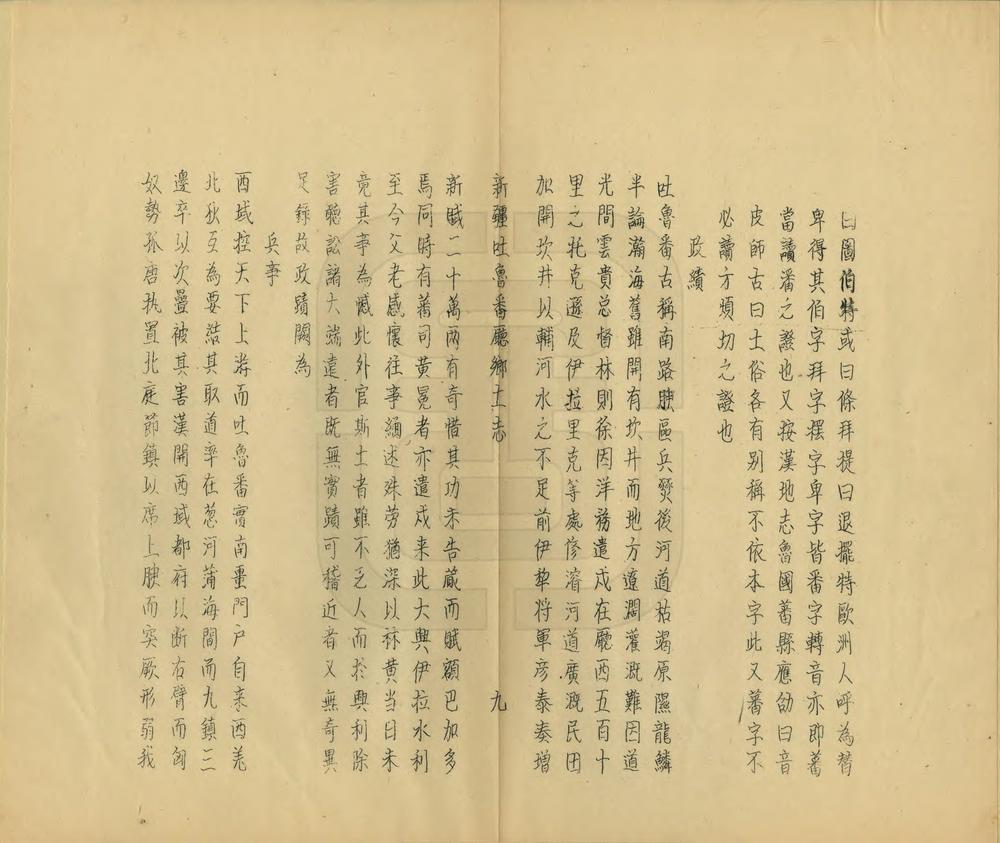 曰圖伯特或曰條拜提曰退擺特歐洲人呼為替
卑得其伯字拜字擺字卑字皆番字轉音亦即蕃
當讀潘之證也又按漢地志魯國蕃縣應劭曰音
皮師古曰土俗各有别稱不依本字此又蕃字不
必讀方煩切之證也
政績
吐魯番古稱南路腴區兵燹後河道枯竭原隰龍鱗
半論瀚海舊雖開有坎井而地方遼濶灌溉難因道
光間雲貴总督林則徐因洋務遣戍在廳西五百十
里之托克遜及伊拉里克等處修濬河道廣溉民田
加開坎井以輔河水之不足前伊犂将軍彦泰奏增
新疆吐魯番廳鄉土志 九
新賦二十萬两有奇惜其功未告蕆而賦額已加多
焉同時有蕃司黄冕者亦遣戍来此大興伊拉水利
至今父老感懷往事緬述殊劳猶深以林黄当日未
竟其事為憾此外官斯土者雖不乏人而於興利除
害聽訟諸大端遠者既無實蹟可稽近者又無奇異
足錄故政蹟闕為
兵事
西域控天下上游而吐魯番實南畺門户自来西羌
北狄互為要結其取道率在葱河蒲海間而九鎮三
邊卒以次疊被其害漢開西域都府以断右臂而匈
奴勢孤唐執置北庭節鎮以席上腴而突厥形弱我